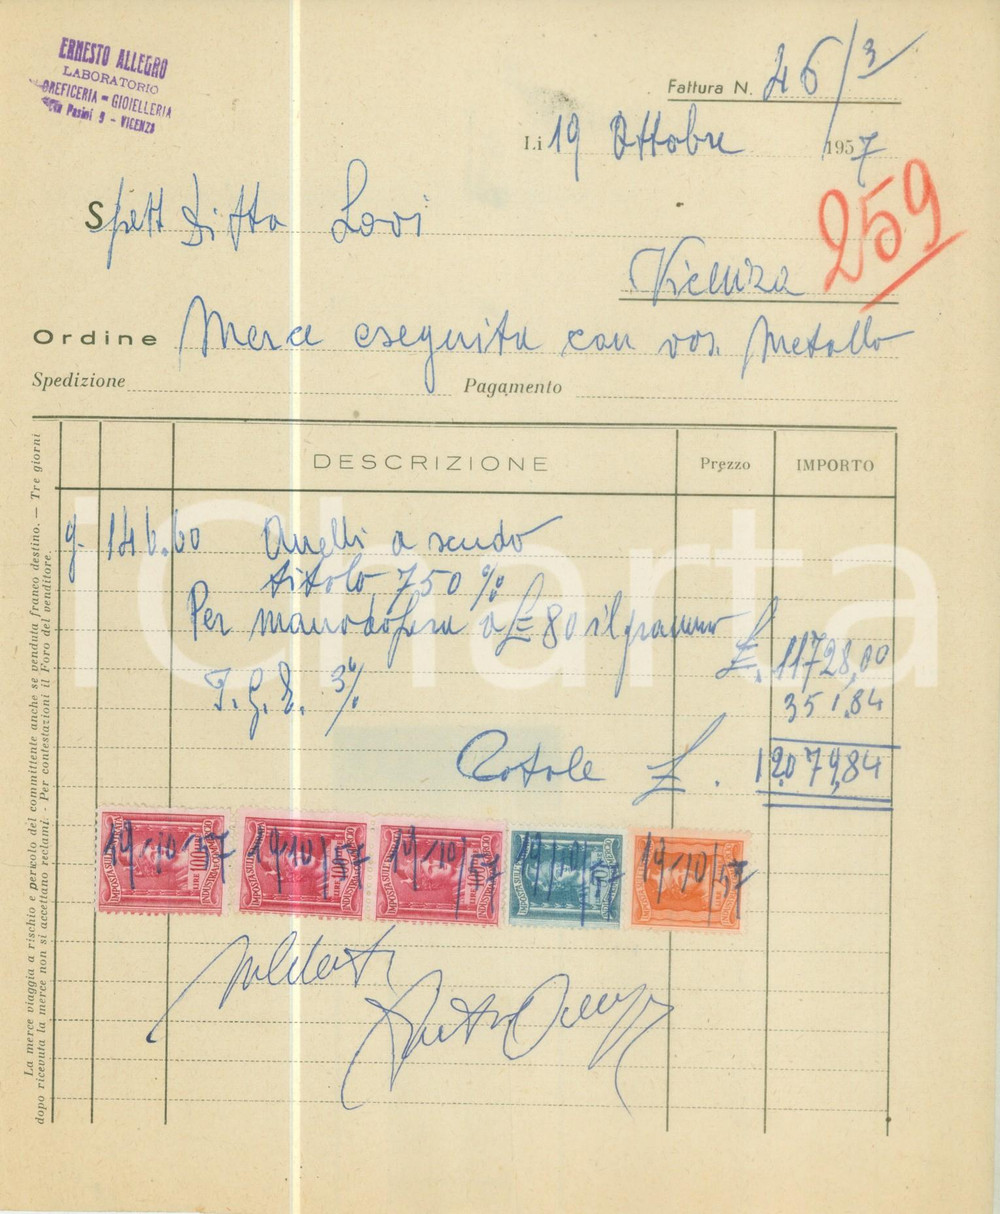 ERNESTO ALLEGRO
LABORATORIO
OREFICERIA - GIOIELLERIA
Via Pasini 9 - VICENZA
Fattura N. 46/3
Li 19 Ottobre 1957
259
Spett Ditta Lovi
Vicenza
Ordine Merce eseguita con vos. Metallo
Spedizione Pagamento
DESCRIZIONE Prezzo IMPORTO
g. 146.60 Anelli a scudo
titolo 750 %
Per manodopera a £ 80 il grammo £. 11728,00
I.G.E. 3% 351,84
Totale £. 12.079,84
iCharta
19/10/57 19/10/57 19/10/57 19/10/57 19/10/57
IMPOSTA SULL'ENTRATA LIRE 100 INDUSTRIA E COMMERCIO
La merce viaggia a rischio e pericolo del committente anche se venduta franco destino. — Tre giorni
dopo ricevuta la merce non si accettano reclami. - Per contestazioni il Foro del venditore.